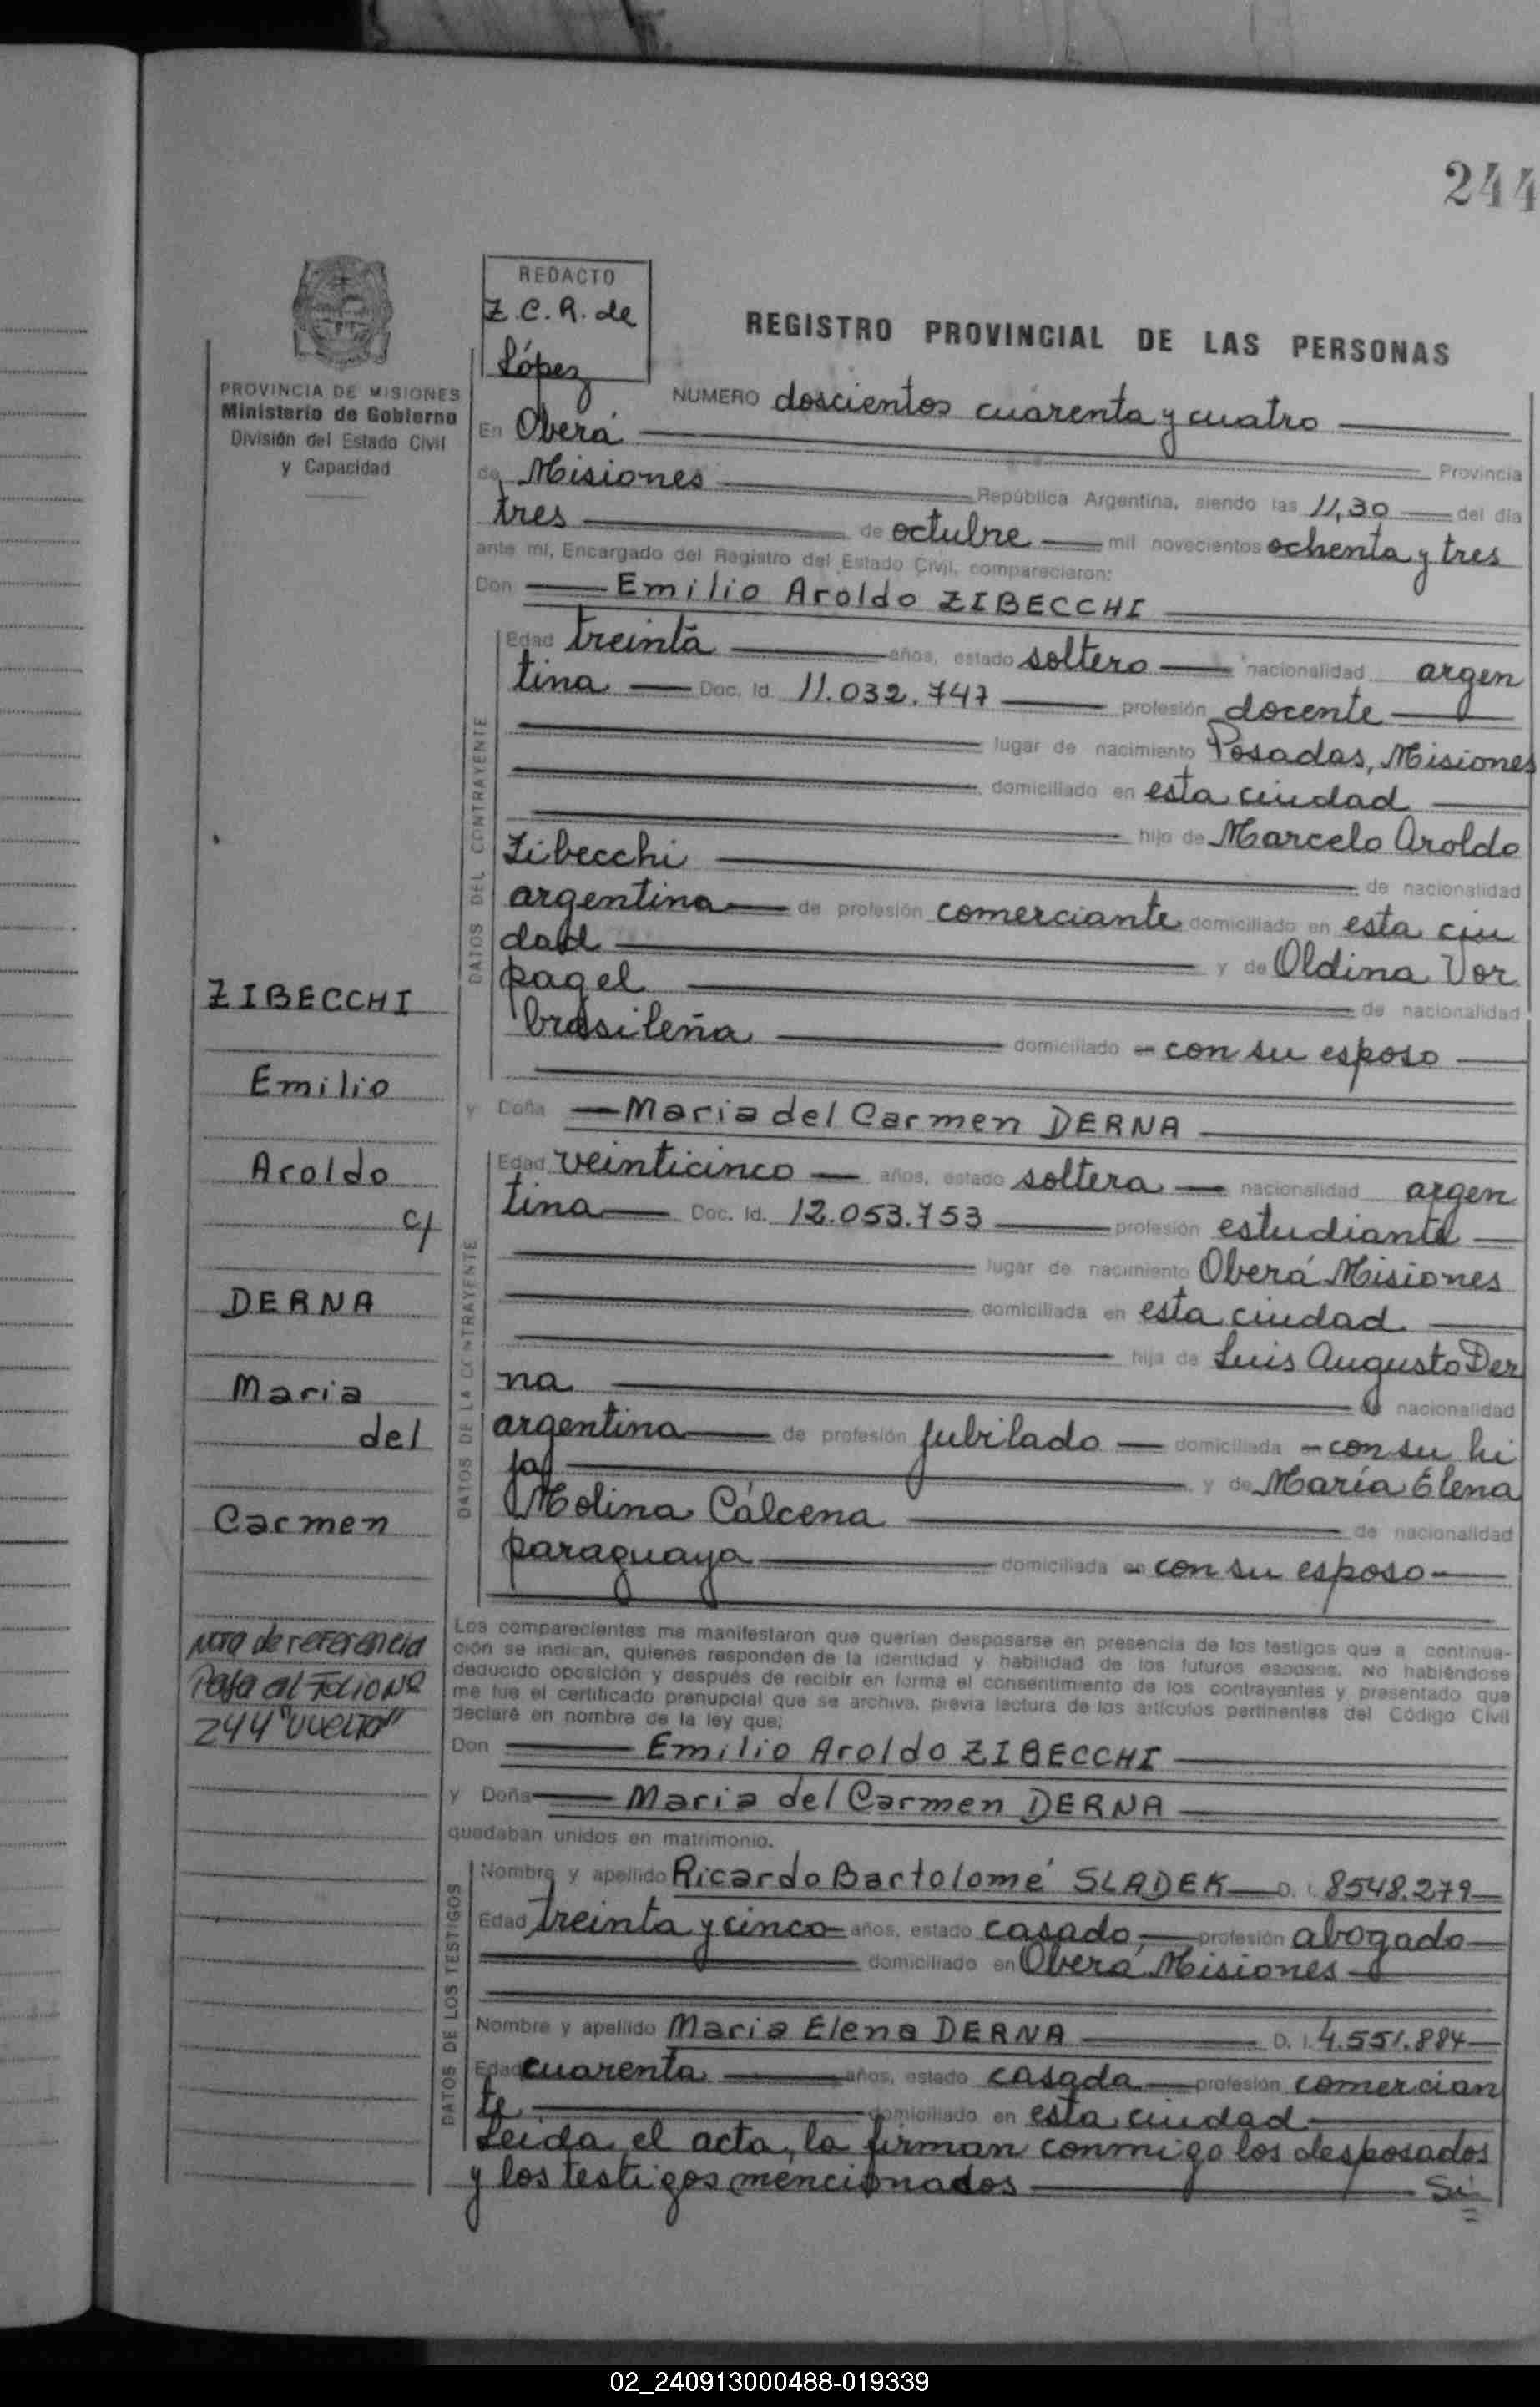 244
REDACTO
Z.C.R. de
López
REGISTRO PROVINCIAL DE LAS PERSONAS
PROVINCIA DE MISIONES
Ministerio de Gobierno
División del Estado Civil
y Capacidad
NUMERO doscientos cuarenta y cuatro
En Oberá Provincia
de Misiones República Argentina, siendo las 11,30 del día
tres de octubre mil novecientos ochenta y tres
ante mí, Encargado del Registro del Estado Civil, comparecieron:
Don Emilio Aroldo ZIBECCHI
DATOS DEL CONTRAYENTE
Edad treinta años, estado soltero nacionalidad argen
tina Doc. Id. 11.032.747 profesión docente
lugar de nacimiento Posadas, Misiones
domiciliado en esta ciudad
hijo de Marcelo Aroldo
Zibecchi de nacionalidad
argentina de profesión comerciante domiciliado en esta ciu
dad y de Oldina Vor
pagel de nacionalidad
brasileña domiciliado con su esposo
y Doña Maria del Carmen DERNA
DATOS DE LA CONTRAYENTE
Edad veinticinco años, estado soltera nacionalidad argen
tina Doc. Id. 12.053.753 profesión estudiante
lugar de nacimiento Oberá Misiones
domiciliada en esta ciudad
hija de Luis Augusto Der
na nacionalidad
argentina de profesión jubilado domiciliada con su hi
ja y de María Elena
Molina Cálcena de nacionalidad
paraguaya domiciliada en con su esposo
ZIBECCHI
Emilio
Aroldo
c/
DERNA
Maria
del
Carmen
Nota de referencia
Pasa al Folio Nº
244 "Vuelto"
Los comparecientes me manifestaron que querían desposarse en presencia de los testigos que a continua-
ción se indican, quienes responden de la identidad y habilidad de los futuros esposos. No habiéndose
deducido oposición y después de recibir en forma el consentimiento de los contrayentes y presentado que
me fue el certificado prenupcial que se archiva, previa lectura de los artículos pertinentes del Código Civil
declaré en nombre de la ley que;
Don Emilio Aroldo ZIBECCHI
y Doña Maria del Carmen DERNA
quedaban unidos en matrimonio.
DATOS DE LOS TESTIGOS
Nombre y apellido Ricardo Bartolomé SLADEK D. I. 8548.279
Edad treinta y cinco años, estado casado, profesión abogado
domiciliado en Oberá Misiones
Nombre y apellido Maria Elena DERNA D. I. 4.551.884
Edad cuarenta años, estado casada profesión comercian
te domiciliado en esta ciudad
Leída el acta, la firman conmigo los desposados
y los testigos mencionados
02_240913000488-019339